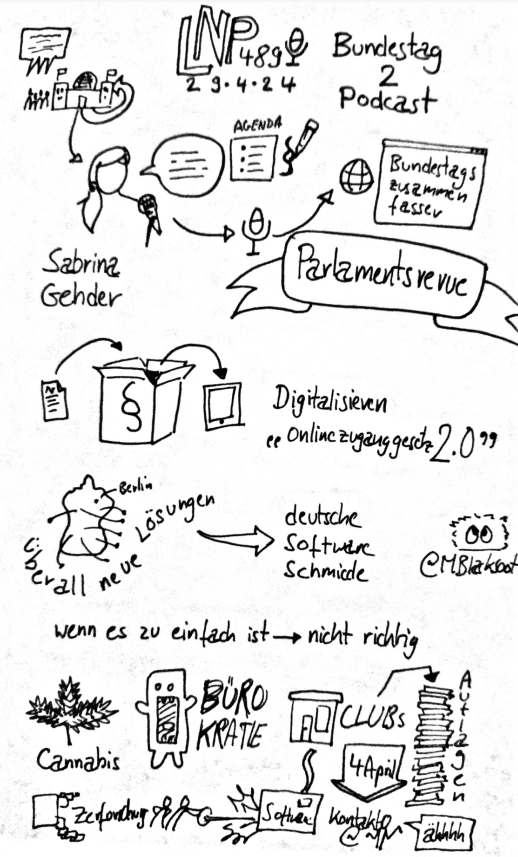 LNP
489
29.4.24
Bundestag
2
Podcast
AGENDA
Bundestags
zusammen
fasser
Sabrina
Gehder
Parlamentsrevue
§
Digitalisieren
"Onlinezuganggesetz 2.0"
Berlin
überall neue Lösungen
deutsche
Software
Schmiede
@MBlaksoot
wenn es zu einfach ist → nicht richtig
Cannabis
BÜRO
KRATIE
CLUBs
Auflagen
4 April
Zerforschung
Software
Kontakte
ähhhh